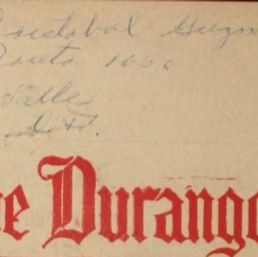 Cristobal Guzm
1000
Valle
D.F.
e Durango